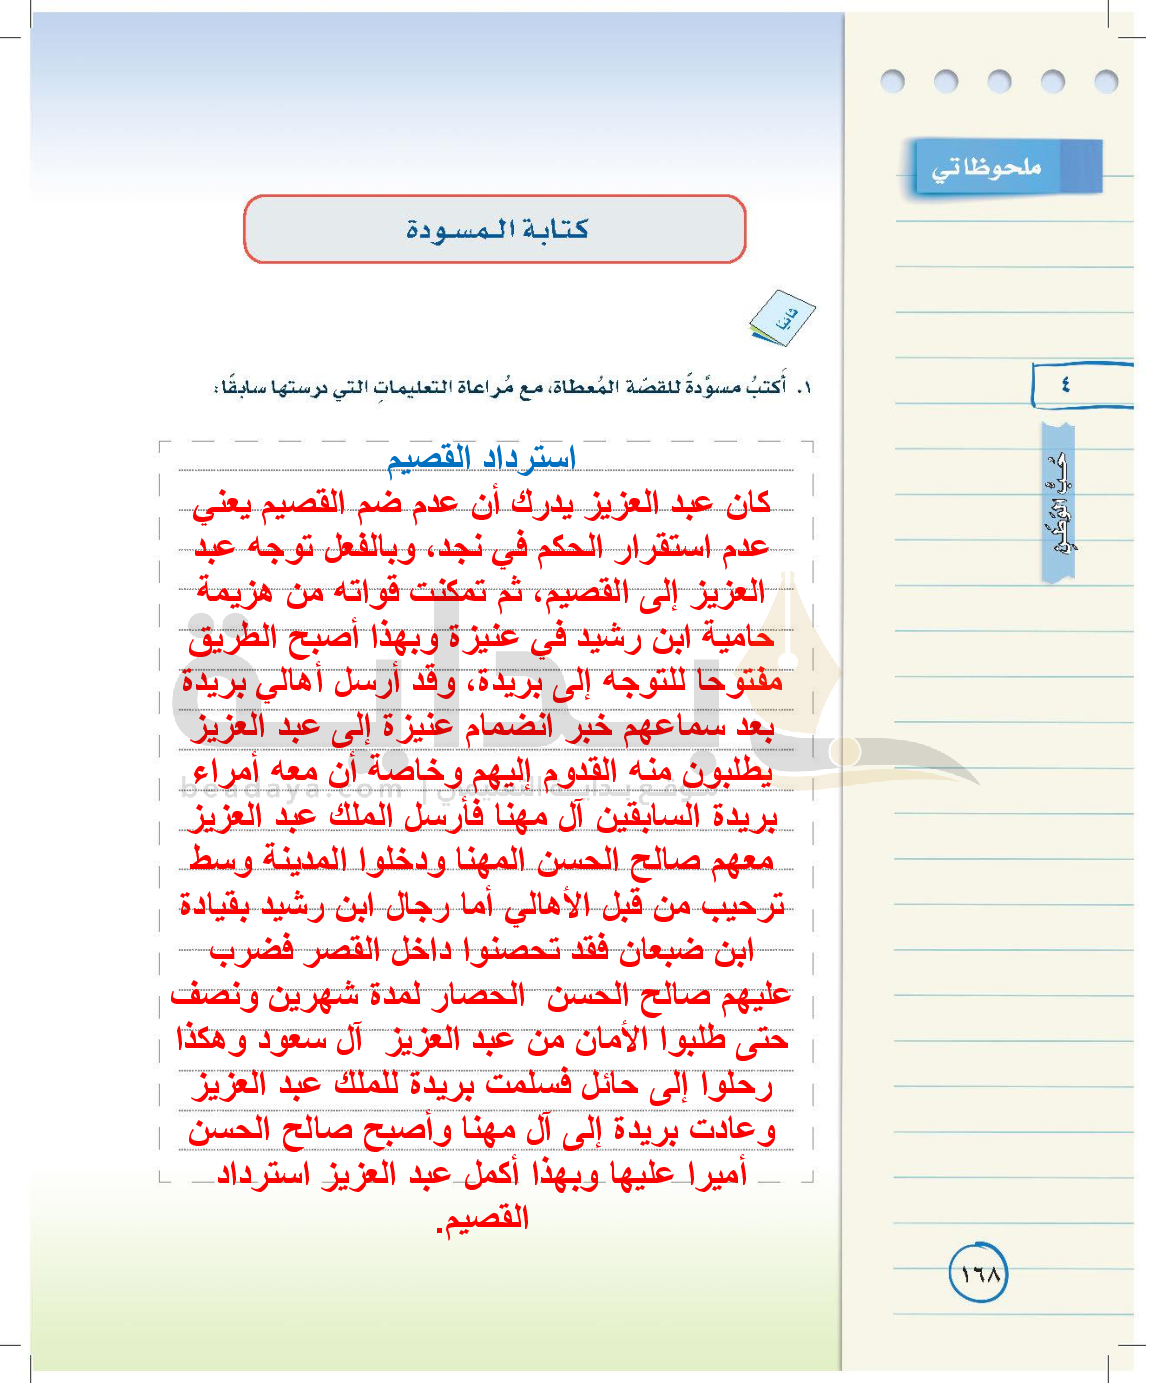 ملحوظاتي
كتابة المسودة
ثانيًا
١. أَكتبُ مسوَّدةً للقصّة المُعطاة، مع مُراعاة التعليماتِ التي درستها سابقًا:
٤
حُبُّ الوَطَنِ
استرداد القصيم
كان عبد العزيز يدرك أن عدم ضم القصيم يعني
عدم استقرار الحكم في نجد، وبالفعل توجه عبد
العزيز إلى القصيم، ثم تمكنت قواته من هزيمة
حامية ابن رشيد في عنيزة وبهذا أصبح الطريق
مفتوحا للتوجه إلى بريدة، وقد أرسل أهالي بريدة
بعد سماعهم خبر انضمام عنيزة إلى عبد العزيز
يطلبون منه القدوم إليهم وخاصة أن معه أمراء
بريدة السابقين آل مهنا فأرسل الملك عبد العزيز
معهم صالح الحسن المهنا ودخلوا المدينة وسط
ترحيب من قبل الأهالي أما رجال ابن رشيد بقيادة
ابن ضبعان فقد تحصنوا داخل القصر فضرب
عليهم صالح الحسن الحصار لمدة شهرين ونصف
حتى طلبوا الأمان من عبد العزيز آل سعود وهكذا
رحلوا إلى حائل فسلمت بريدة للملك عبد العزيز
وعادت بريدة إلى آل مهنا وأصبح صالح الحسن
أميرا عليها وبهذا أكمل عبد العزيز استرداد
القصيم.
بداية
beadaya.com |
١٦٨